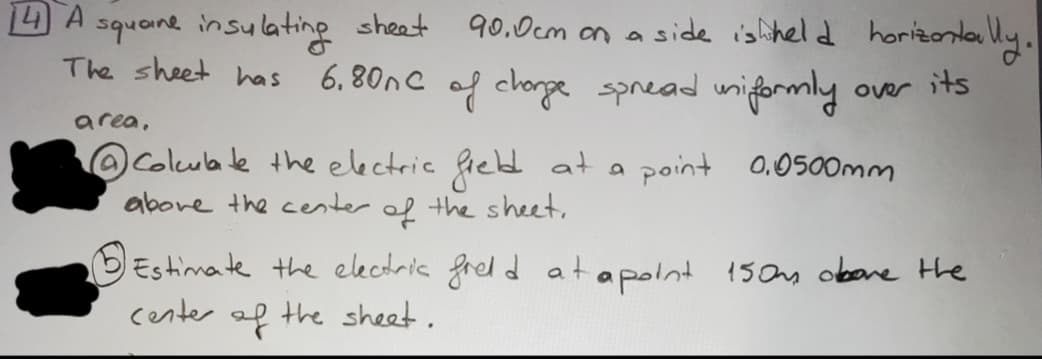 14 A square insulating sheet 90.0cm on a side is held horizontally.
The sheet has 6.80nC of charge spread uniformly over its
area.
a Calculate the electric field at a point 0.0500mm
above the center of the sheet.
b Estimate the electric field at a point 150m above the
center of the sheet.